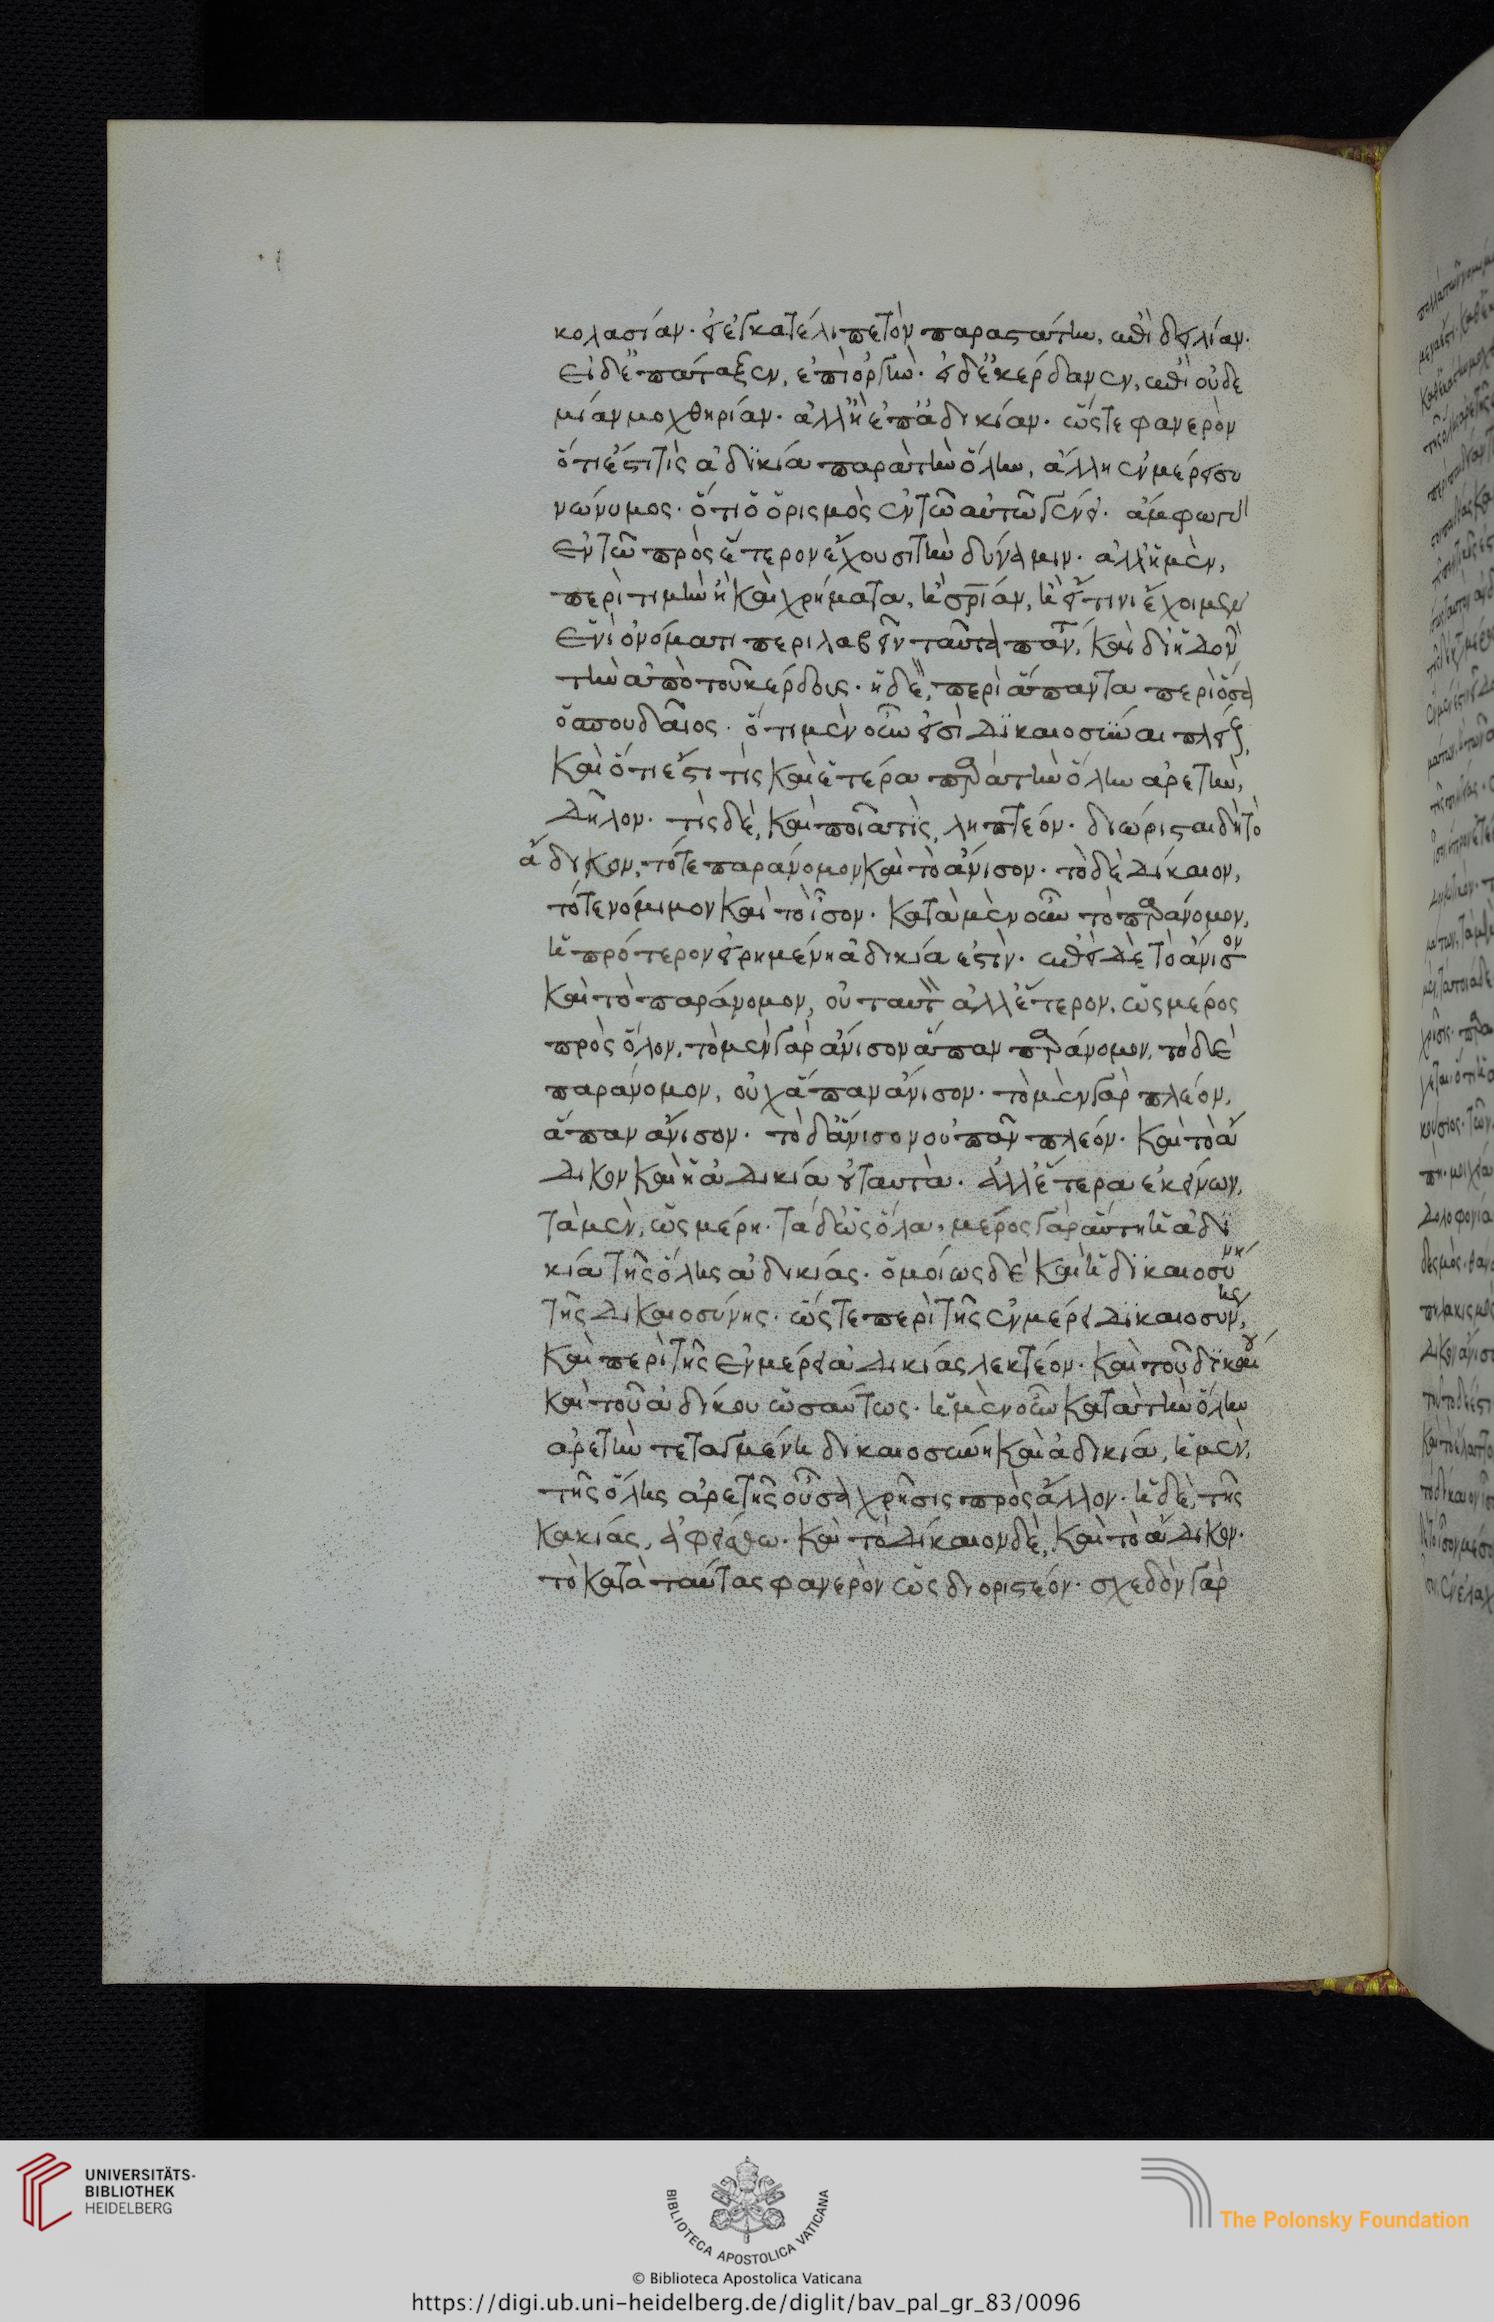 κολασίαν· εἰ ἐγκατέλιπε τὸν παραστάτην, ἐπὶ δειλίαν·
εἰ δ' ἐπάταξεν, ἐπὶ ὀργήν· εἰ δ' ἐκέρδανεν, ἐπ' οὐδε
μίαν μοχθηρίαν· ἀλλ' ἢ ἐπ' ἀδικίαν· ὥστε φανερὸν
ὅτι ἔστι τὶς ἀδικία παρὰ τὴν ὅλην, ἄλλη ἐν μέρει συ
νώνυμος· ὅτι ὁ ὁρισμὸς ἐν τῶ αὐτῶ γένει· ἄμφω γὰρ
ἐν τῶ πρὸς ἕτερον ἔχουσι τὴν δύναμιν· ἀλλ' ἡ μὲν,
περὶ τιμὴν ἢ καὶ χρήματα, ἢ σωτηρίαν, ἢ εἴ τινι ἔχοιμεν
ἑνὶ ὀνόματι περιλαβεῖν ταῦτα πάντα, καὶ δι' ἡδονὴν
τὴν ἀπὸ τοῦ κέρδους· ἡ δὲ, περὶ ἅπαντα περὶ ὅσα
ὁ σπουδαῖος· ὅτι μὲν οὖν εἰσὶ δικαιοσύναι πλείους,
καὶ ὅτι ἔστι τὶς καὶ ἑτέρα παρὰ τὴν ὅλην ἀρετὴν,
δῆλον· τὶς δὲ, καὶ ποία τὶς, ληπτέον· διώρισται δὴ τὸ
ἄδικον, τό τε παράνομον καὶ τὸ ἄνισον· τὸ δὲ δίκαιον,
τό τε νόμιμον καὶ τὸ ἴσον· κατὰ μὲν οὖν τὸ παράνομον,
ἡ πρότερον εἰρημένη ἀδικία ἐστίν· ἐπεὶ δὲ τὸ ἄνισον
καὶ τὸ παράνομον, οὐ ταυτὸν ἀλλ' ἕτερον, ὡς μέρος
πρὸς ὅλον, τὸ μὲν γὰρ ἄνισον ἅπαν παράνομον, τὸ δὲ
παράνομον, οὐχ ἅπαν ἄνισον· τὸ μὲν γὰρ πλέον,
ἅπαν ἄνισον· τὸ δ' ἄνισον οὐ πᾶν πλέον· καὶ τὸ ἄ
δικον καὶ ἡ ἀδικία οὐ ταυτὰ· ἀλλ' ἕτερα ἐκείνων,
τὰ μὲν, ὡς μέρη· τὰ δ' ὡς ὅλα, μέρος γὰρ αὕτη ἡ ἀδι
κία τῆς ὅλης ἀδικίας· ὁμοίως δὲ καὶ ἡ δικαιοσύνη
τῆς δικαιοσύνης· ὥστε περὶ τῆς ἐν μέρει δικαιοσύνης,
καὶ περὶ τῆς ἐν μέρει ἀδικίας λεκτέον· καὶ τοῦ δικαίου
καὶ τοῦ ἀδίκου ὡσαύτως· ἡ μὲν οὖν κατὰ τὴν ὅλην
ἀρετὴν τεταγμένη δικαιοσύνη καὶ ἀδικία, ἡ μὲν,
τῆς ὅλης ἀρετῆς οὖσα χρῆσις πρὸς ἄλλον· ἡ δὲ, τῆς
κακίας, ἀφείσθω· καὶ τὸ δίκαιον δὲ, καὶ τὸ ἄδικον·
τὸ κατὰ ταύτας φανερὸν ὡς διοριστέον· σχεδὸν γὰρ
UNIVERSITÄTS-
BIBLIOTHEK
HEIDELBERG
BIBLIOTECA APOSTOLICA VATICANA
The Polonsky Foundation
© Biblioteca Apostolica Vaticana
https://digi.ub.uni-heidelberg.de/diglit/bav_pal_gr_83/0096